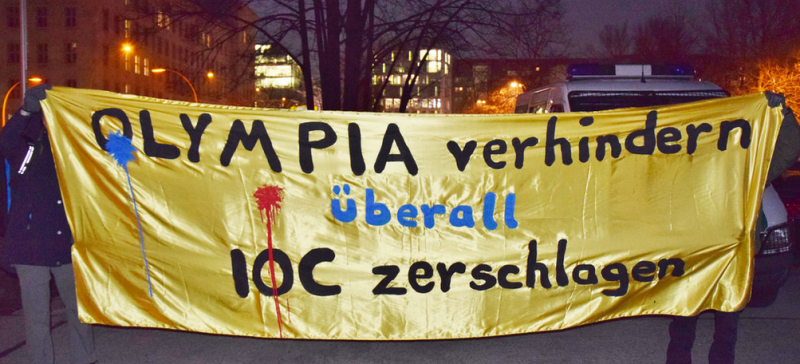 OLYMPIA verhindern
überall
IOC zerschlagen